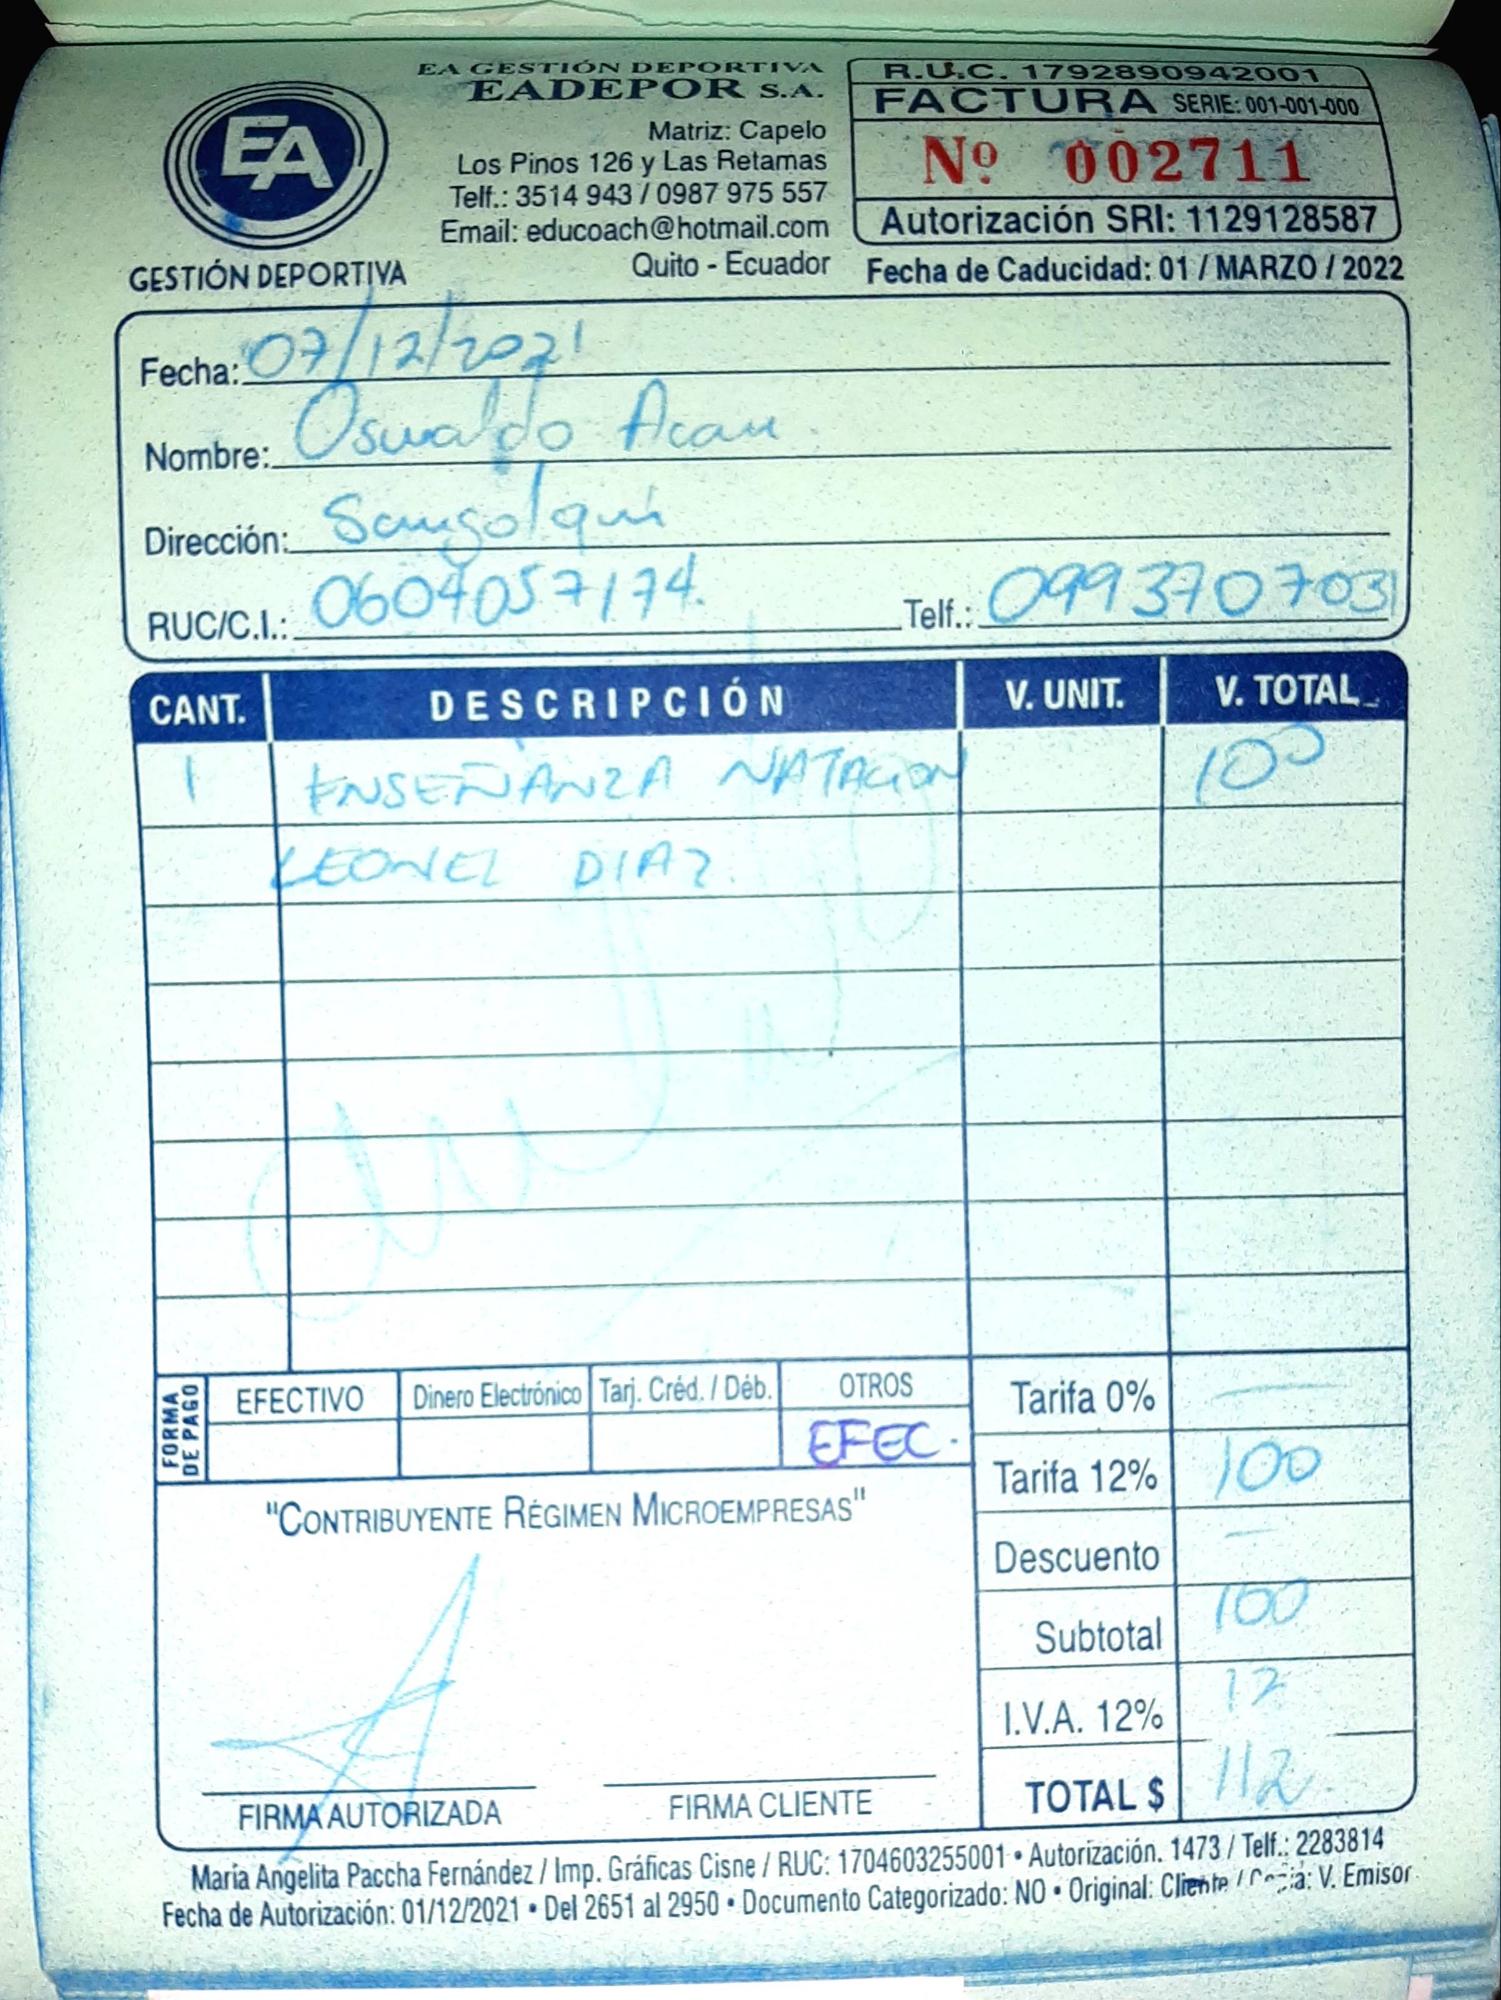 EA
GESTIÓN DEPORTIVA
EA GESTIÓN DEPORTIVA
EADEPOR S.A.
Matriz: Capelo
Los Pinos 126 y Las Retamas
Telf.: 3514 943 / 0987 975 557
Email: educoach@hotmail.com
Quito - Ecuador
R.U.C. 1792890942001
FACTURA SERIE: 001-001-000
Nº 002711
Autorización SRI: 1129128587
Fecha de Caducidad: 01 / MARZO / 2022
Fecha: 07/12/2021
Nombre: Oswaldo
Dirección: Sangolquí
RUC/C.I.: 0604057174. Telf.: 0993707031
CANT. DESCRIPCIÓN V. UNIT. V. TOTAL
1 ENSEÑANZA NATACION 100
LEONEL DIAZ
FORMA DE PAGO
EFECTIVO Dinero Electrónico Tarj. Créd. / Déb. OTROS
EFEC.
Tarifa 0% —
Tarifa 12% 100
Descuento —
Subtotal 100
I.V.A. 12% 12
TOTAL $ 112
"CONTRIBUYENTE RÉGIMEN MICROEMPRESAS"
FIRMA AUTORIZADA FIRMA CLIENTE
María Angelita Paccha Fernández / Imp. Gráficas Cisne / RUC: 1704603255001 • Autorización. 1473 / Telf.: 2283814
Fecha de Autorización: 01/12/2021 • Del 2651 al 2950 • Documento Categorizado: NO • Original: Cliente / Copia: V. Emisor